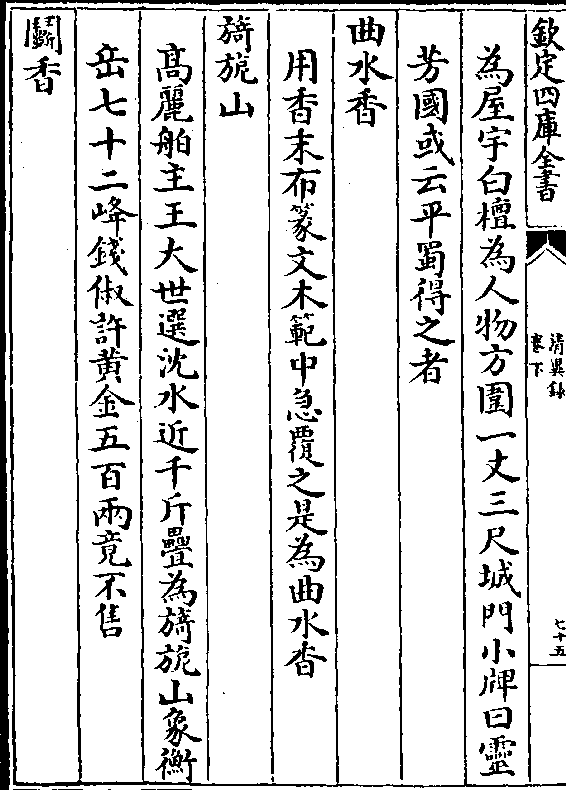 欽定四庫全書
清異錄
卷下
七十五
為屋宇白檀為人物方圍一丈三尺城門小牌曰靈
芳國或云平蜀得之者
曲水香
用香末布篆文木範中急覆之是為曲水香
旖旎山
高麗舶主王大世選沈水近千斤疊為旖旎山象衡
岳七十二峰錢俶許黄金五百兩竟不售
鬭香